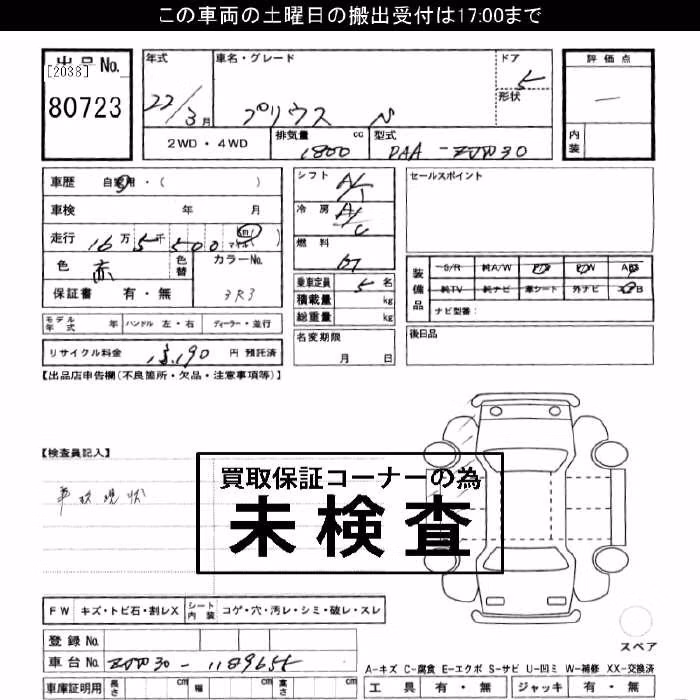 この車両の土曜日の搬出受付は17:00まで
出品No.
[2038]
80723
年式
22/3月
車名・グレード
プリウス
ドア
5
形状
2WD・4WD
排気量 1800 cc
型式 DAA-ZVW30
評価点
内装
車歴 自家用・( )
車検 年 月
走行 16万5千500 km マイル( )
色 赤
色替
カラーNo. 3R3
保証書 有・無
モデル年式 年
ハンドル 左・右
ディーラー・並行
リサイクル料金 円 預託済
シフト A/T
冷房 A/C
燃料
乗車定員 5名
積載量 kg
総重量 kg
名変期限
月 日
セールスポイント
装備品
S/R 純A/W P/S P/W ABS
純TV 純ナビ 革シート 外ナビ エアB
ナビ型番:
後日品
【出品店申告欄(不良箇所・欠品・注意事項等)】
【検査員記入】
事故現状
買取保証コーナーの為
未検査
FW キズ・トビ石・割レX
シート内装 コゲ・穴・汚レ・シミ・破レ・スレ
登録No.
車台No. ZVW30-1189655
車庫証明用 長さ cm 幅 cm 高さ cm
スペア
A-キズ C-腐食 E-エクボ S-サビ U-凹ミ W-補修 XX-交換済
工具 有・無 ジャッキ 有・無